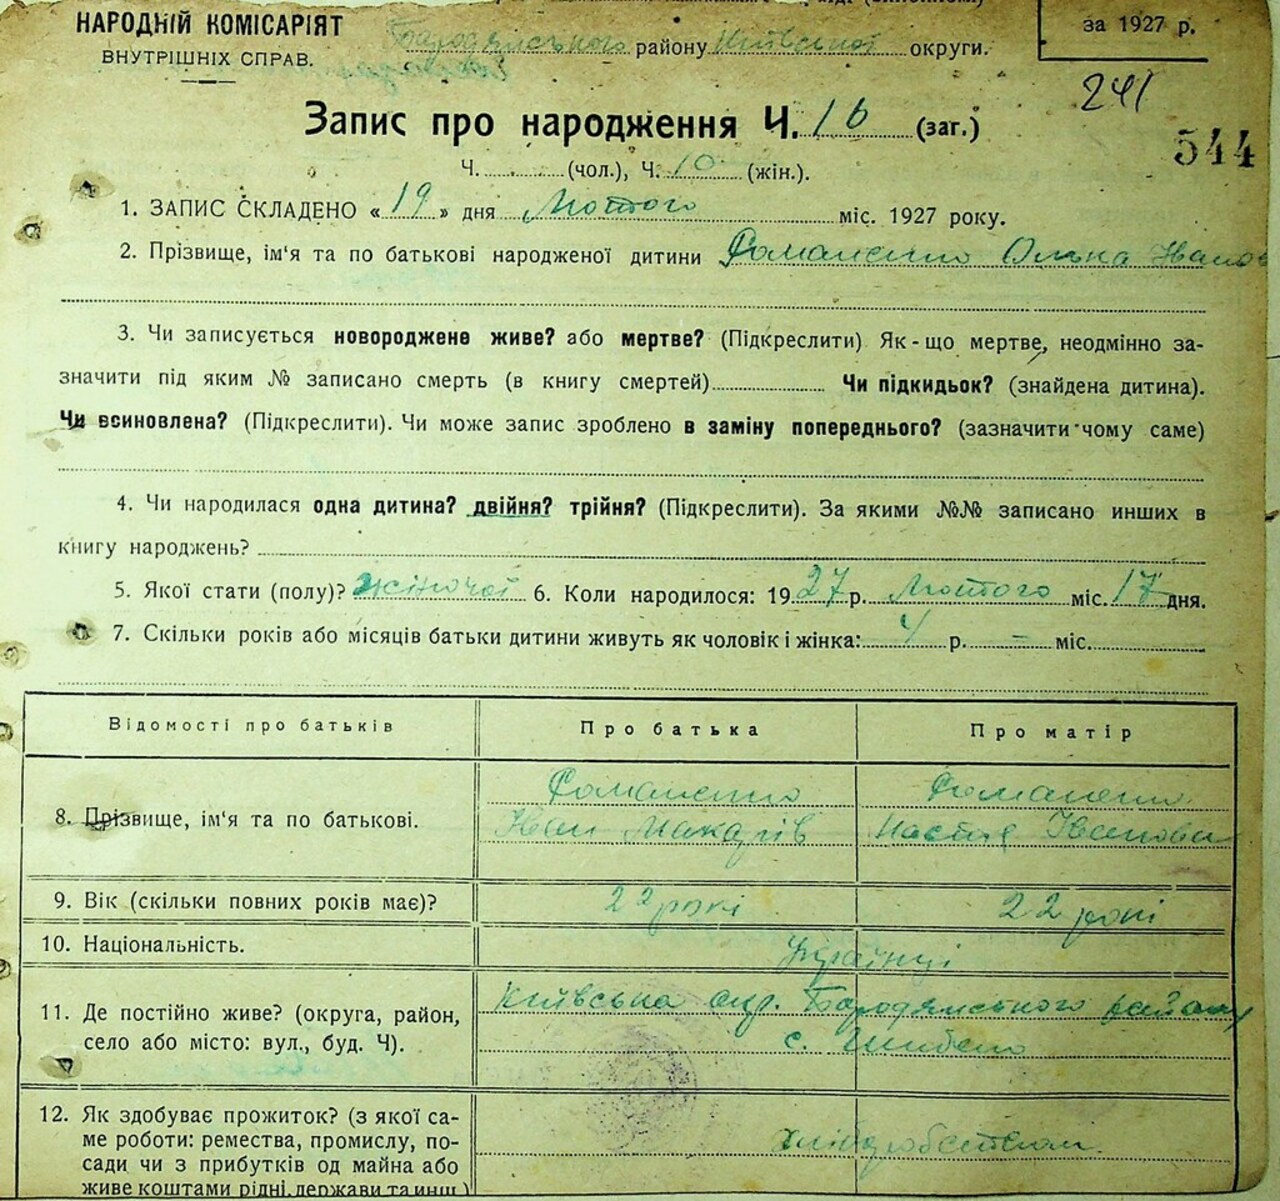 НАРОДНІЙ КОМІСАРІЯТ
ВНУТРІШНІХ СПРАВ.
Бородянського району Київської округи.
за 1927 р.
241
544
Запис про народження Ч. 16 (заг.)
Ч. (чол.), Ч. 10 (жін.).
1. ЗАПИС СКЛАДЕНО «19» дня Лютого міс. 1927 року.
2. Прізвище, ім'я та по батькові народженої дитини Романенко Олька Іванов
3. Чи записується новороджене живе? або мертве? (Підкреслити) Як-що мертве, неодмінно за-
значити під яким № записано смерть (в книгу смертей) Чи підкидьок? (знайдена дитина).
Чи всиновлена? (Підкреслити). Чи може запис зроблено в заміну попереднього? (зазначити чому саме)
4. Чи народилася одна дитина? двійня? трійня? (Підкреслити). За якими №№ записано инших в
книгу народжень?
5. Якої стати (полу)? жіночої 6. Коли народилося: 1927 р. Лютого міс. 17 дня.
7. Скільки років або місяців батьки дитини живуть як чоловік і жінка: 4 р. – міс.
Відомості про батьків Про батька Про матір
8. Прізвище, ім'я та по батькові. Романенко Романенко
Іван Макарів Настя Іванова
9. Вік (скільки повних років має)? 22 рокі 22 рокі
10. Національність. Українці
11. Де постійно живе? (округа, район, село або місто: вул., буд. Ч). Київська окр. Бородянського району
с. Шибено
12. Як здобуває прожиток? (з якої са-
ме роботи: ремества, промислу, по-
сади чи з прибутків од майна або Хліборобством
живе коштами рідні, держави та инш.)